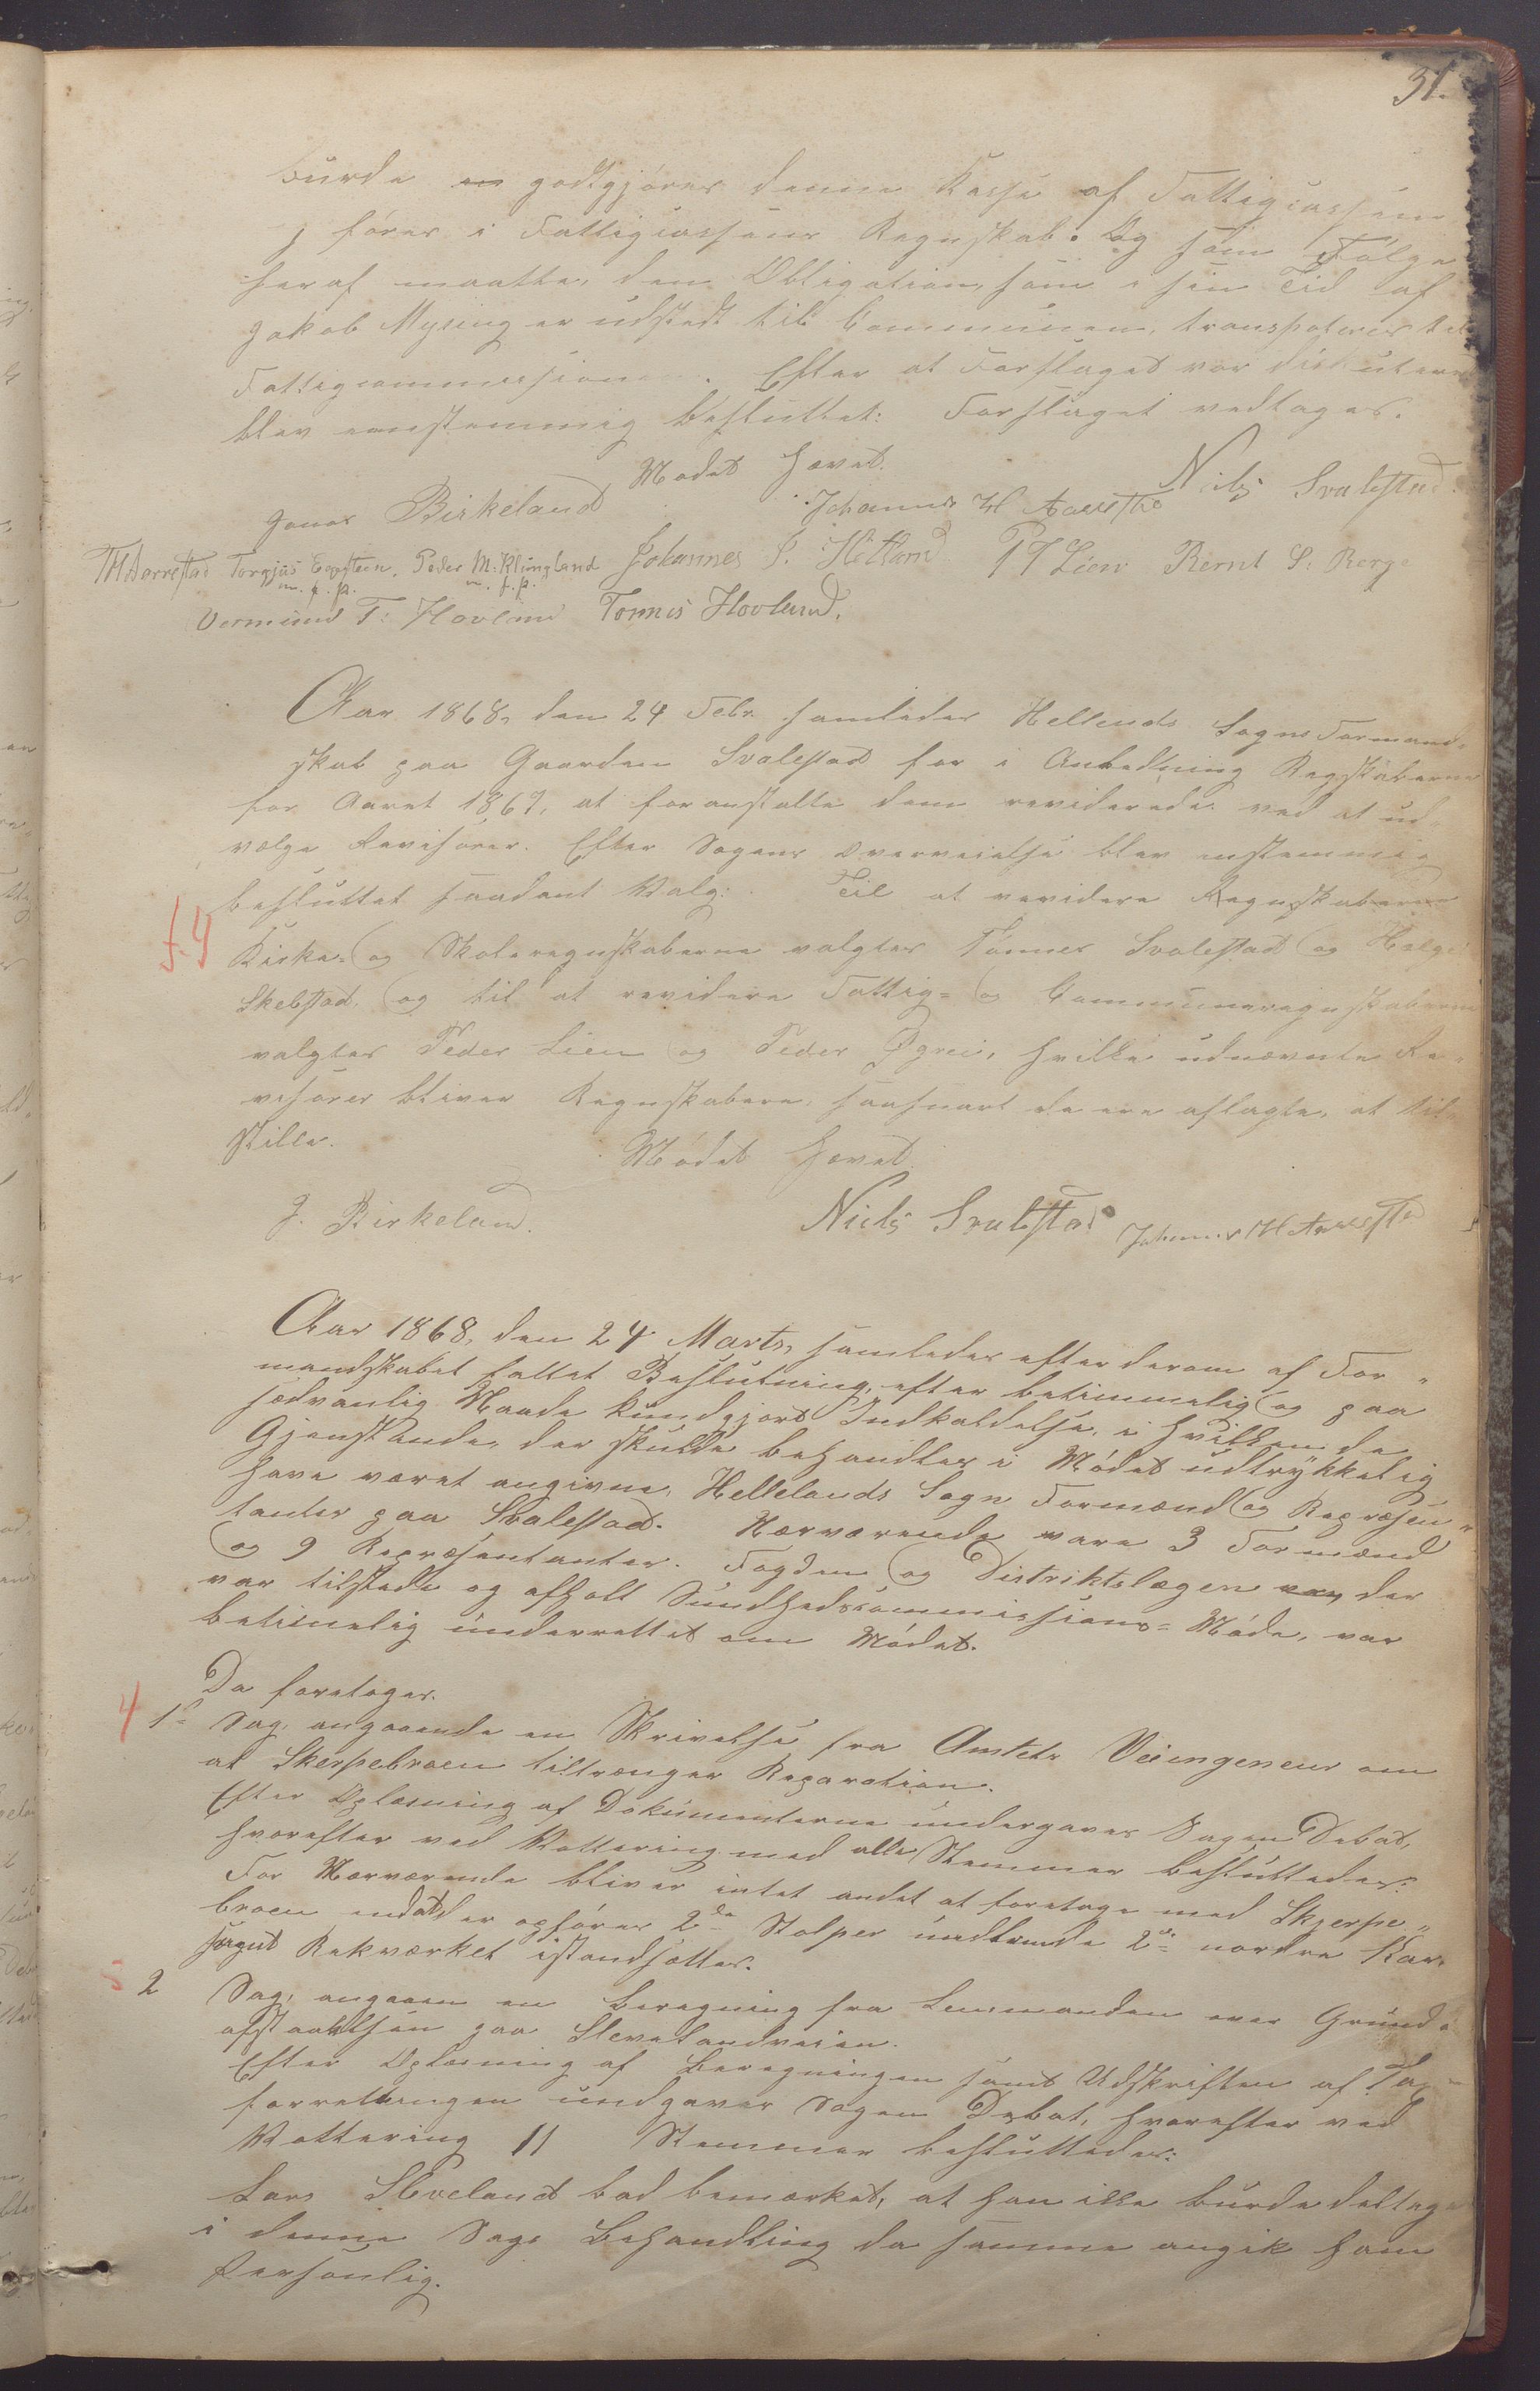 31.
burde en godtgjøres denne Kasse af Fattigcassen
føres i Fattigcassens Regnskab. Og som Følge
heraf maatte, den Obligation, som i sin Tid af
Jakob Mysing er udstedt til Communen, transpoteres til
Fattigcommissionen. Efter at Forslaget var diskuteret
blev eenstemmig besluttet: Forslaget vedtages.
Modet hævet.
Niels Svalestad.
Jonas Birkeland Johannes H Aarrestad
TH Aarrestad Torgjus Eegsteen. Peder M. Klungland Johannes J. Hetland P T Lien Bernt S. Berge
m. f. p. m. f. p.
Vermund T. Hovland Tonnes Hovland.
Aar 1868, den 24 Febr. samledes Hellends Sogns Formand-
skab paa Gaarden Svalestad for i Anledning Regskaberne
for Aaret 1867, at foranstalte dem reviderede ved at ud-
vælge Revisorer. Efter Sagens Overveielse blev enstemmig
besluttet saadant Valg: Til at revidere Regnskaberne
f. 4
Kirke- og Skoleregnskaberne valgtes Tønnes Svalestad og Helge
Skebstad, og til at revidere Fattig- og Communeregnskaberne
valgtes Peder Lien og Peder Øgrei, hvilke udnævnte Re-
visorer bliver Regnskabere, saasnart de ere aflagte, at til-
stille.
Mødet hævet.
J. Birkeland. Niels Svalestad Johannes H Aarrestad
Aar 1868, den 24 Marts, samledes efter derom af For-
mandskabet fattet Beslutning, efter betimmelig og paa
sædvanlig Maade kundgjort Indkaldelse, i hvilken de
Gjenstande, der skulde behandles i Mødet udtrykkelig
have været angivne, Hellelands Sogn Formænd og Repræsen-
tanter paa Svalestad. Nærværende vare 3 Formænd
og 9 Repræsentanter. Fogden og Distriktslægen var, der
var tilstede og afholt Sundhedscommissions-Møde, var
betimelig underrettet om Mødet.
Da foretoges.
4 1o Sag, angaaende en Skrivelse fra Amtets Veiingeneur om
at Skerpebroen tiltrænger Reparation.
Efter Oplæsning af Dokumenterne undergaves Sagen Debat,
hvorefter ved Vottering med alle Stemmer besluttedes:
For Nærværende bliver intet andet at foretage med Skjerpe-
broen end at der opføres 2de Stolper 2de nordre Kar,
Rekværket istandsættes.
5 2 Sag, angaaen en Beregning fra Lensmanden over Grund-
afstaaelsen paa Slevelandveien.
Efter Oplæsning af Beregningen samt Udskriften af Tax-
forretningen undgaves Sagen Debat, hvorefter ved
Vottering 11 Stemmer besluttedes:
Lars Sleveland bad bemærket, at han ikke burde deltage
i denne Sags Behandling da samme angik ham
Personlig.